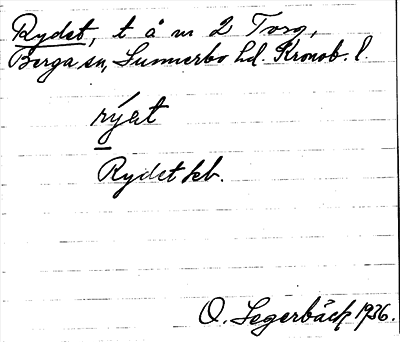 Rydet, t å nr 2 Torg,
Berga sn, Sunnerbo hd. Kronob. l.
rýet
Rydet kb.
O. Segerbäck 1936.